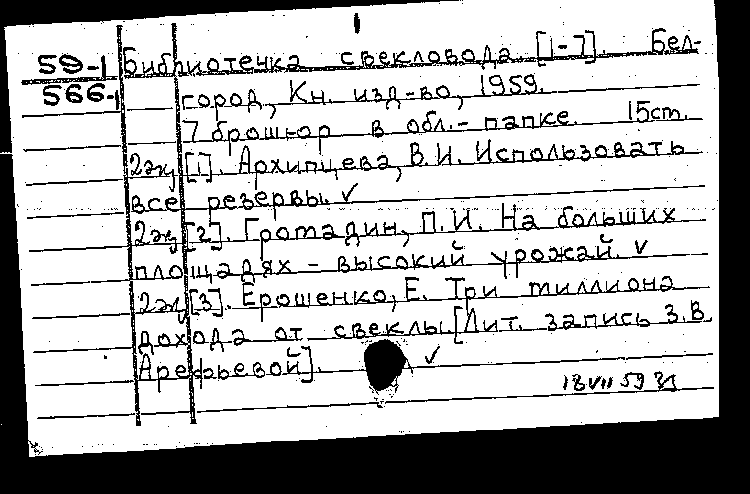 1
59-1 Библиотечка свекловода. [1-7]. Бел-
566-1 город, Кн. изд-во, 1959.
7 брошюр в обл.-папке. 15cm.
2экз [1]. Архипцева, В.И. Использовать
все резервы. ✓
2экз [2]. Громадин, П.И. На больших
площадях - высокий урожай. ✓
2экз [3]. Ерошенко, Е. Три миллиона
дохода от свеклы. [Лит. запись З.В.
Арефьевой]. ✓
18 VII 59